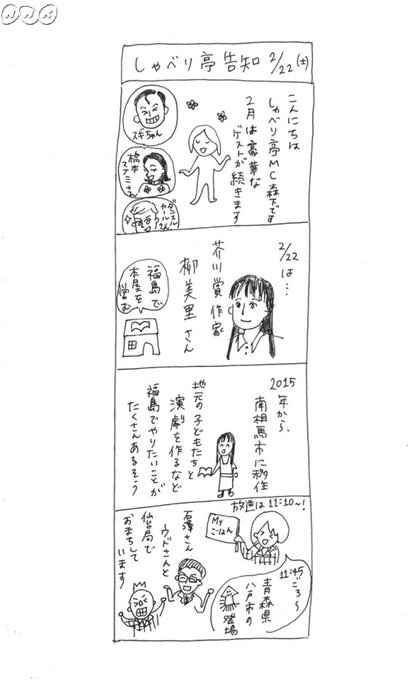 NHK
しゃべり亭告知 2/22(土)
こんにちは
しゃべり亭MC森下です
2月は豪華な
ゲストが続きます
スギちゃん
橋本
マナミさん
ダニエル
カールさん
2/22は…
芥川賞作家
柳美里さん
福島で
本屋を
営む
2015年から、
南相馬市に移住
地元の子どもたちと
演劇を作るなど
福島でやりたいことが
たくさんあるそう
放送は11:10〜!
My
ごはん
11:45ごろ〜
青森県
八戸市の
登場
石澤さん
ウドさんと
仙台局で
おまちして
います